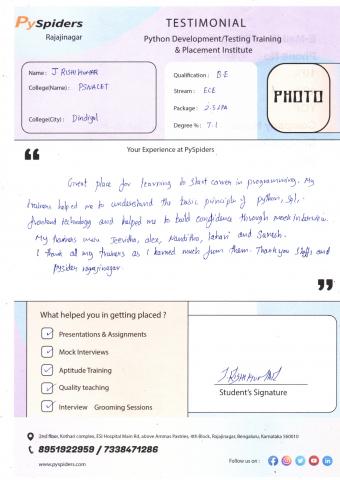 PySpiders
Rajajinagar
TESTIMONIAL
Python Development/Testing Training
& Placement Institute
Name : J RISHI KUMAR
College(Name) : PSNACET
College(City) : Dindigul
Qualification : B.E
Stream : ECE
Package : 2.5 LPA
Degree % : 7.1
PHOTO
Your Experience at PySpiders
“
Great place for learning to start career in programming. My
trainers helped me to understand the basic principle of python, sql,
frontend technology and helped me to build confidence through mock interview.
My trainers were Jeevitha, alex, and Suresh.
I thank all my trainers as I learned much from them. Thank you staffs and
pyspider rajajinagar.
”
What helped you in getting placed ?
✓ Presentations & Assignments
✓ Mock Interviews
✓ Aptitude Training
✓ Quality teaching
✓ Interview Grooming Sessions
Student's Signature
2nd floor, Kinhari complex, ESI Hospital Main Rd, above Ammas Pastries, 4th Block, Rajajinagar, Bengaluru, Karnataka 560010
8951922959 / 7338471286
www.pyspiders.com
Follow us on :